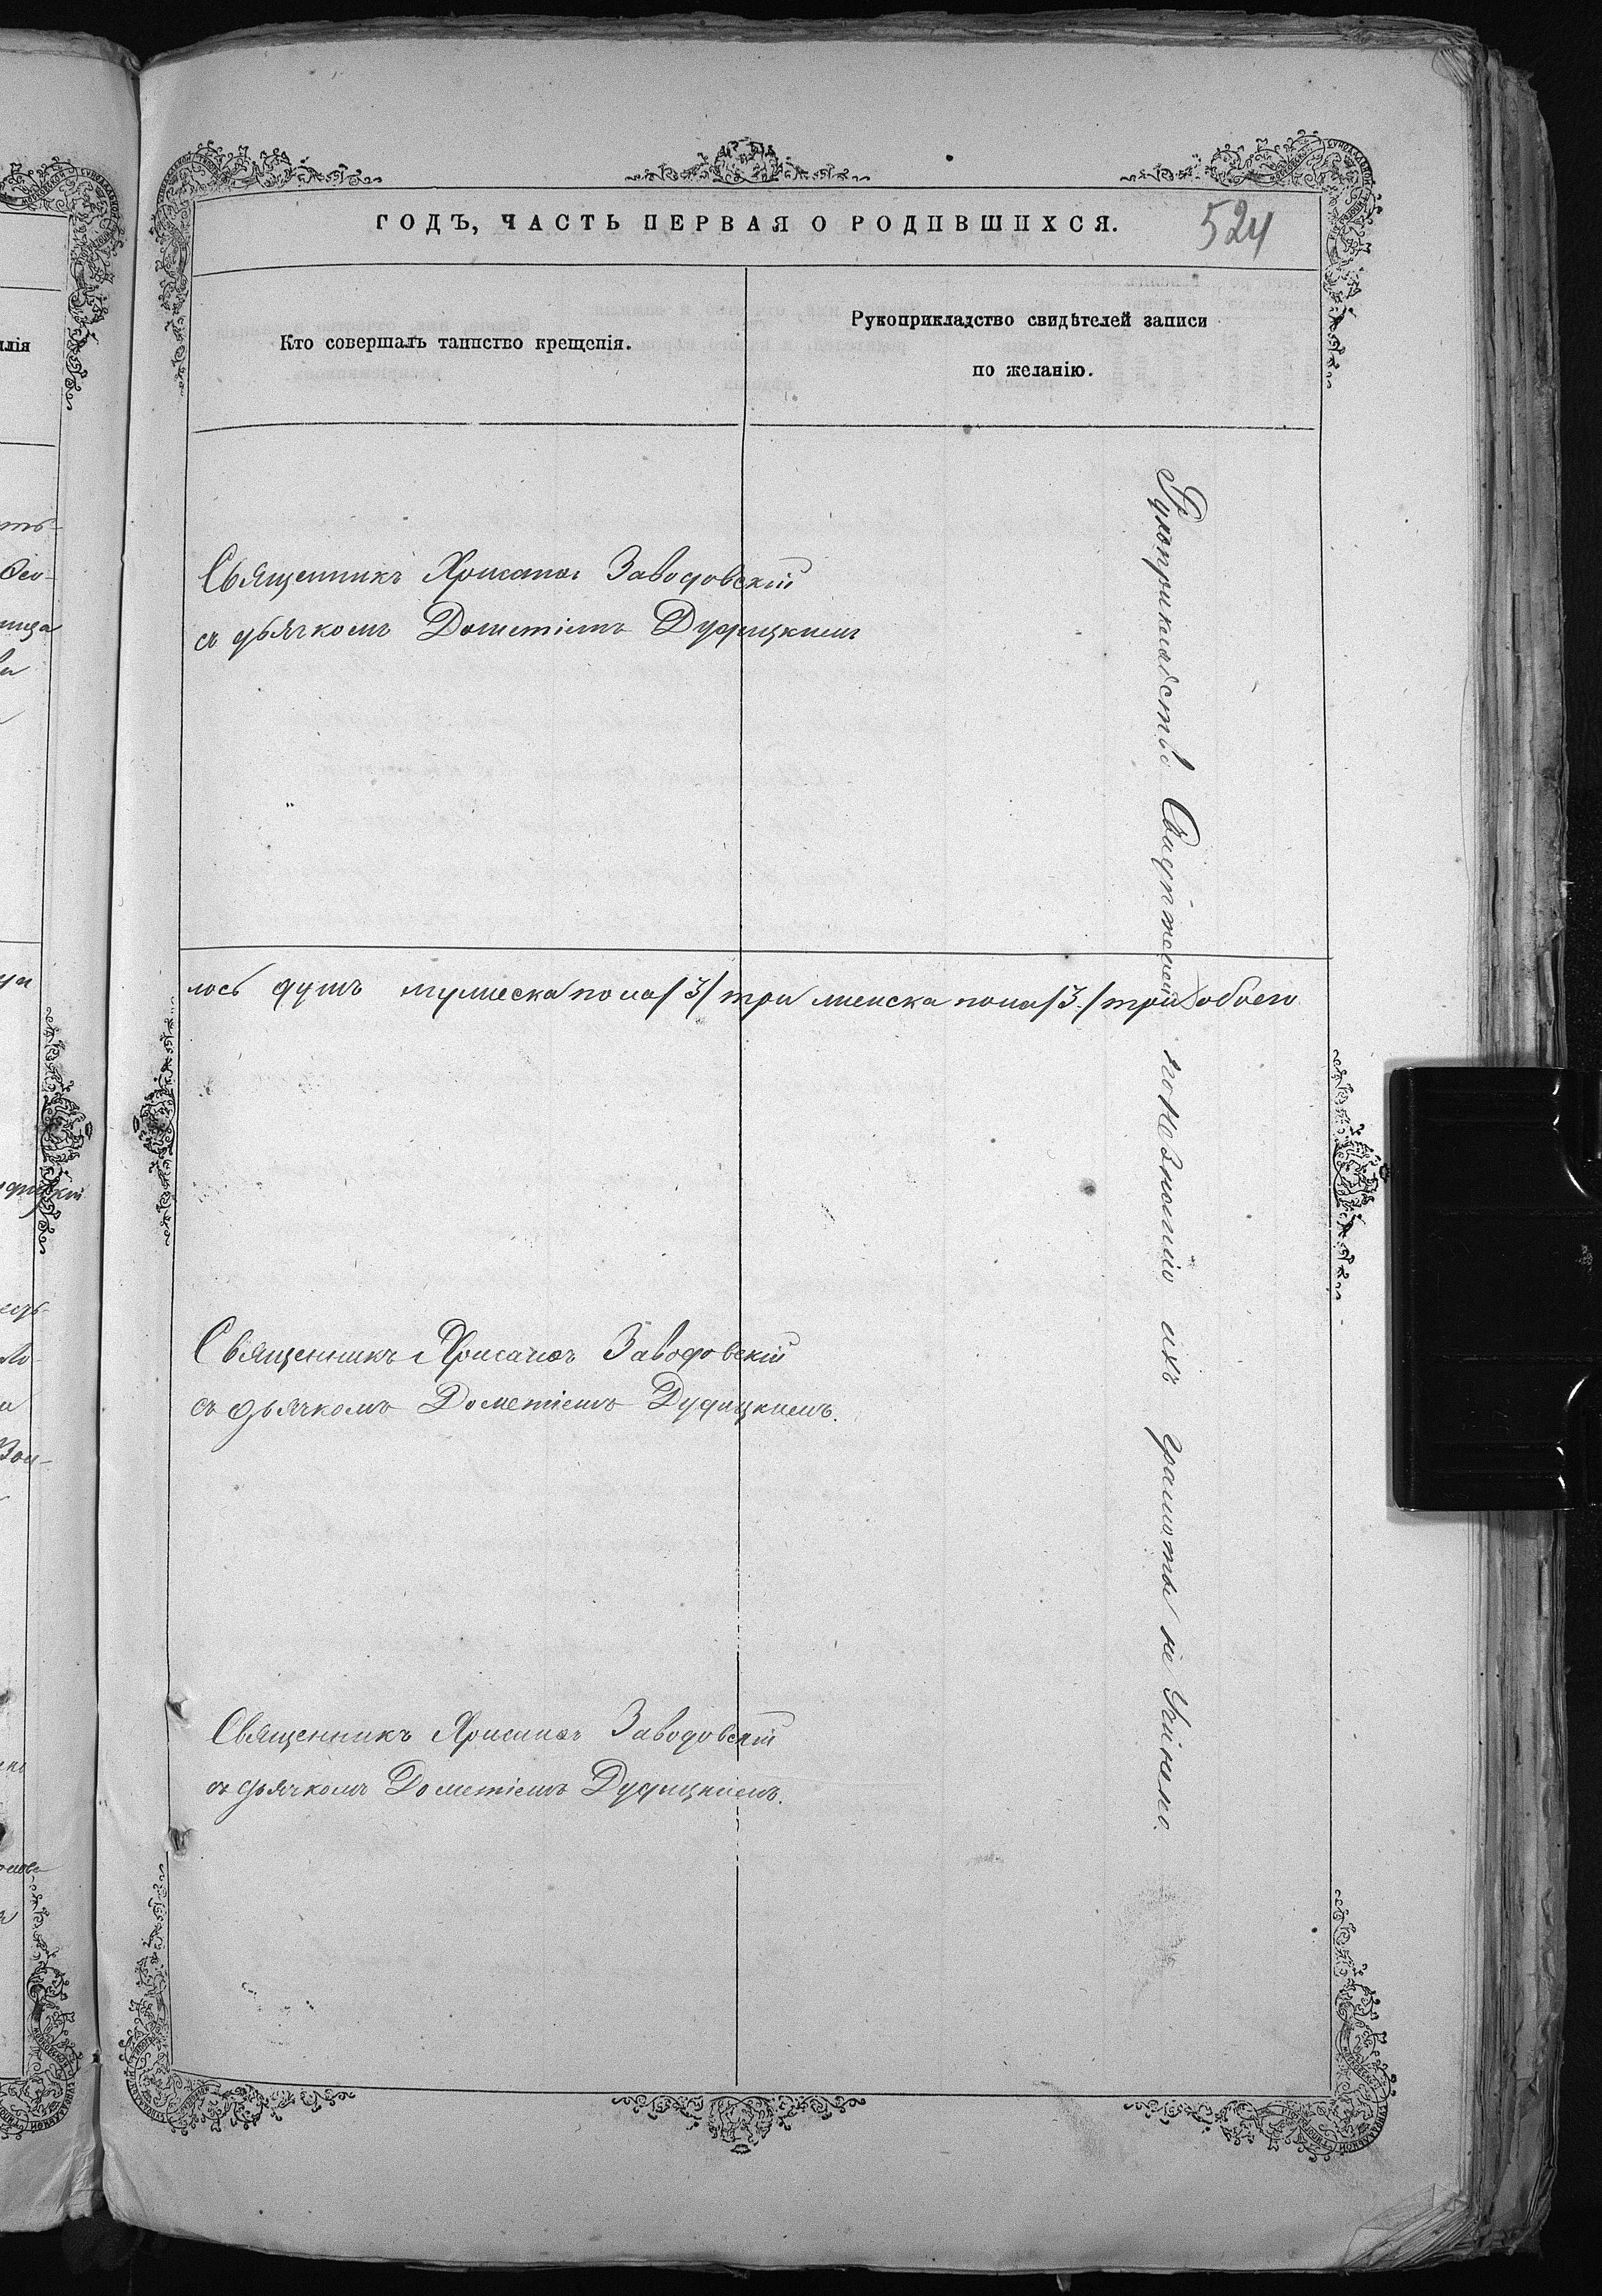 ГОДЪ, ЧАСТЬ ПЕРВАЯ О РОДИВШИХСЯ.
524
Кто совершалъ таинство крещенія.
Рукоприкладство свидѣтелей записи
по желанію.
Священникъ Хрисанѳъ Заводовскій
съ дьячкомъ Дометіемъ Дудицкимъ
лось душъ мужеска пола /3/ три женска пола /3/ три обоего
Священникъ Хрисанѳъ Заводовскій
съ дьячкомъ Дометіемъ Дудицкимъ.
Священникъ Хрисанѳъ Заводовскій
съ дьячкомъ Дометіемъ Дудицкимъ.
Рукоприкладство Свидѣтелей по незнанію ихъ грамоты не учинено.
лія